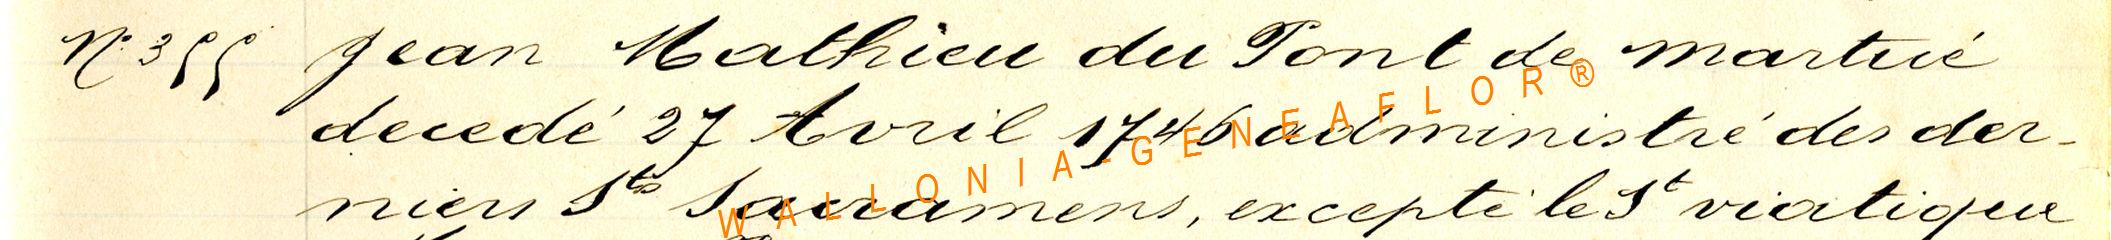 N° 355 Jean Mathieu du Pont de Martué
decedé 27 Avril 1746 administré des der-
niers Sts Sacramens, excepté le St viatique
WALLONIA-GENEAFLOR®